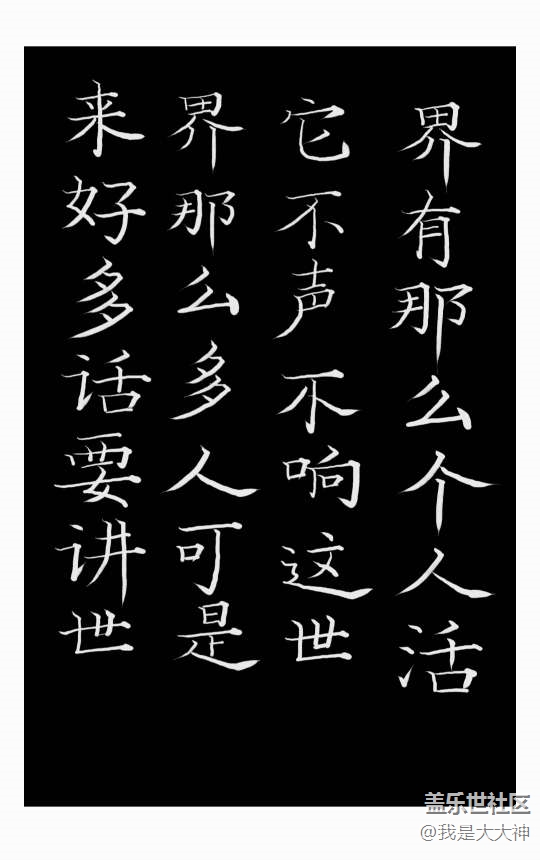 来好多话要讲世
界那么多人可是
它不声不响这世
界有那么个人活
盖乐世社区
@我是大大神